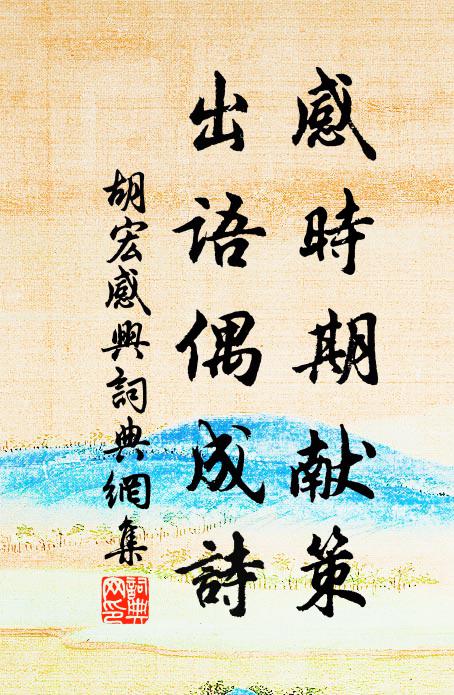 感時期献策
出语偶成詩
胡宏感興詞典網集
詞典网印